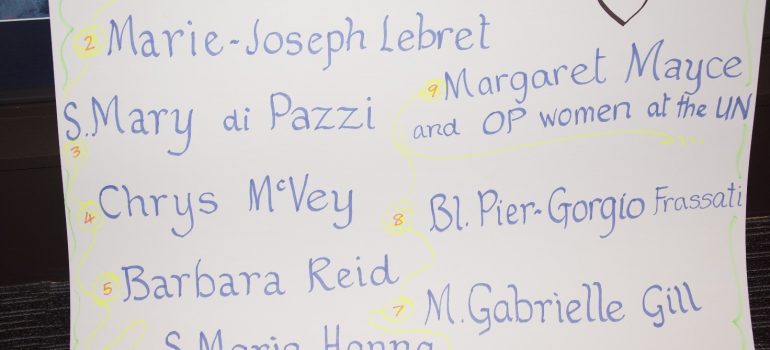 2 Marie-Joseph Lebret
9 Margaret Mayce
and OP women at the UN
S. Mary di Pazzi
3
4 Chrys McVey
8 Bl. Pier-Gorgio Frassati
5 Barbara Reid
7 M. Gabrielle Gill
S. Maria Hanna